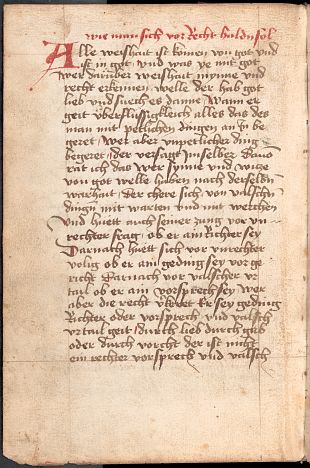 wie man sich vor Recht halden sol
Alle weishait ist komen von got vnd
ist in got vnd was ye mit got
wer daruber weishait mynne vnd
recht erkennen welle der hab got
lieb vnd furch es danne wann er
geit vberflussigkleich alles das des
man mit petlichen dingen an in be
geret wer aber vnpetlicher ding
begeret der versagt im selber
rat ich das wer synne vnd wicze
von got welle haben nach der selben
warhait Der chere sich von valschn
dingen mit warten vnd mit werchen
vnd huett auch seiner zung vor vn
rechter frag ob er ain Richter sey
Darnach huett sich vor vnrechter
volig ob er ain geding sey vor ge
richt Darnach vor valscher vr
tail ob er ain vorsprech sey wer
aber die recht v'keret Er sey geding
Richter oder vorsprech vnd valsch
vrtail geit durch lieb durch gab
oder durch vorcht der ist nicht
ein rechter vorsprech vnd valsch